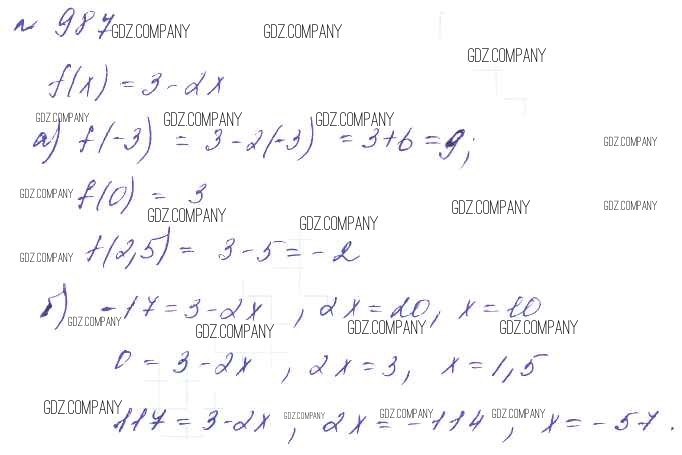 № 987 GDZ.COMPANY GDZ.COMPANY
GDZ.COMPANY
f(x) = 3 - 2x
GDZ.COMPANY GDZ.COMPANY GDZ.COMPANY
а) f(-3) = 3 - 2(-3) = 3 + 6 = 9; GDZ.COMPANY
GDZ.COMPANY f(0) = 3 GDZ.COMPANY GDZ.COMPANY
GDZ.COMPANY GDZ.COMPANY
GDZ.COMPANY f(2,5) = 3 - 5 = -2
б) -17 = 3 - 2x , 2x = 20, x = 10
GDZ.COMPANY GDZ.COMPANY GDZ.COMPANY GDZ.COMPANY
0 = 3 - 2x , 2x = 3, x = 1,5
GDZ.COMPANY GDZ.COMPANY GDZ.COMPANY GDZ.COMPANY
117 = 3 - 2x , 2x = -114 , x = -57 .